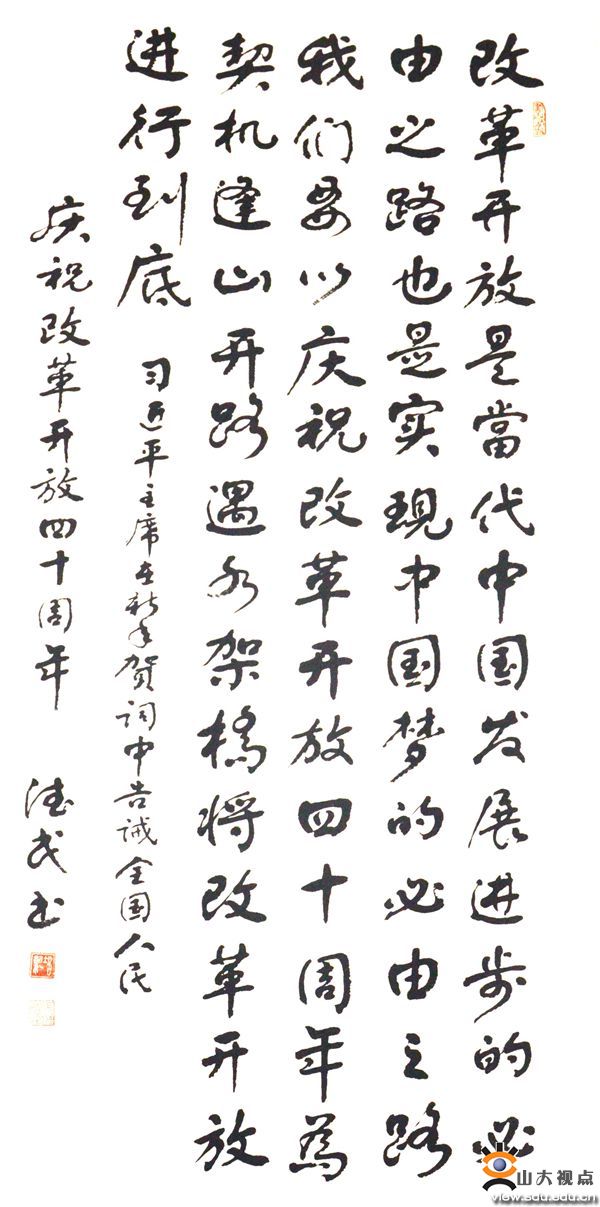 改革开放是當代中国发展进步的必
由之路也是实现中国梦的必由之路
我们要以庆祝改革开放四十周年為
契机逢山开路遇水架橋将改革开放
进行到底
习近平主席在新年贺词中告诫全国人民
庆祝改革开放四十周年
德民书
山大视点
view.sdu.edu.cn